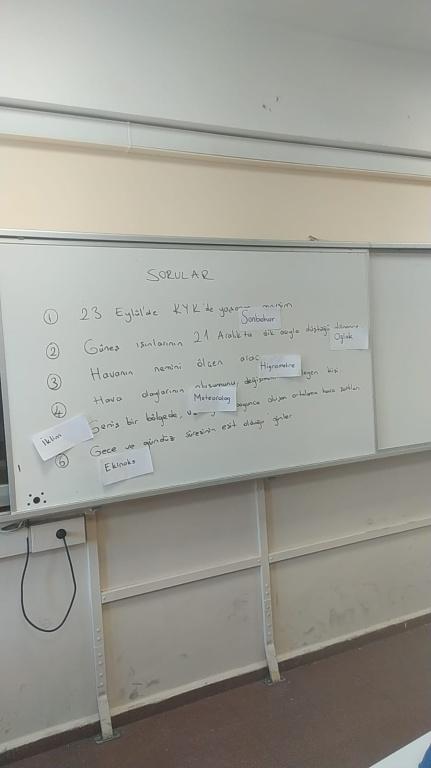 SORULAR
1 23 Eylül'de KYK'de yaşanan mevsim
Sonbahar
2 Güneş ışınlarının 21 Aralıkta dik açıyla düştüğü dönence
Oğlak
3 Havanın nemini ölçen araç
Higrometre
4 Hava olaylarının oluşumunu, değişimini kişi
Meteorolog
Geniş bir bölgede, boyunca oluşan ortalama hava şartları
İklim
6 Gece ve gündüz süresinin eşit olduğu günler
Ekinoks